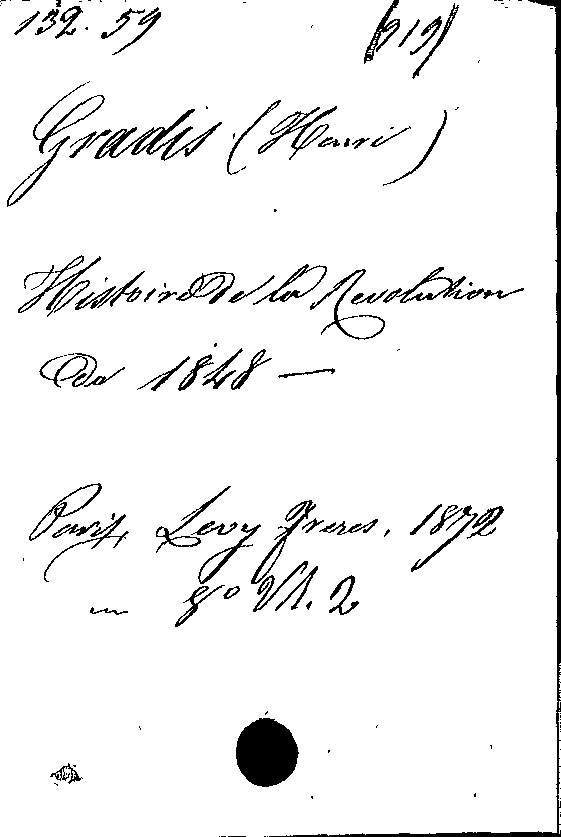 132.59 (919)
Gradis (Henri)
Histoire de la Revolution
de 1848 —
Paris, Levy Freres, 1872
in 8° Vl. 2